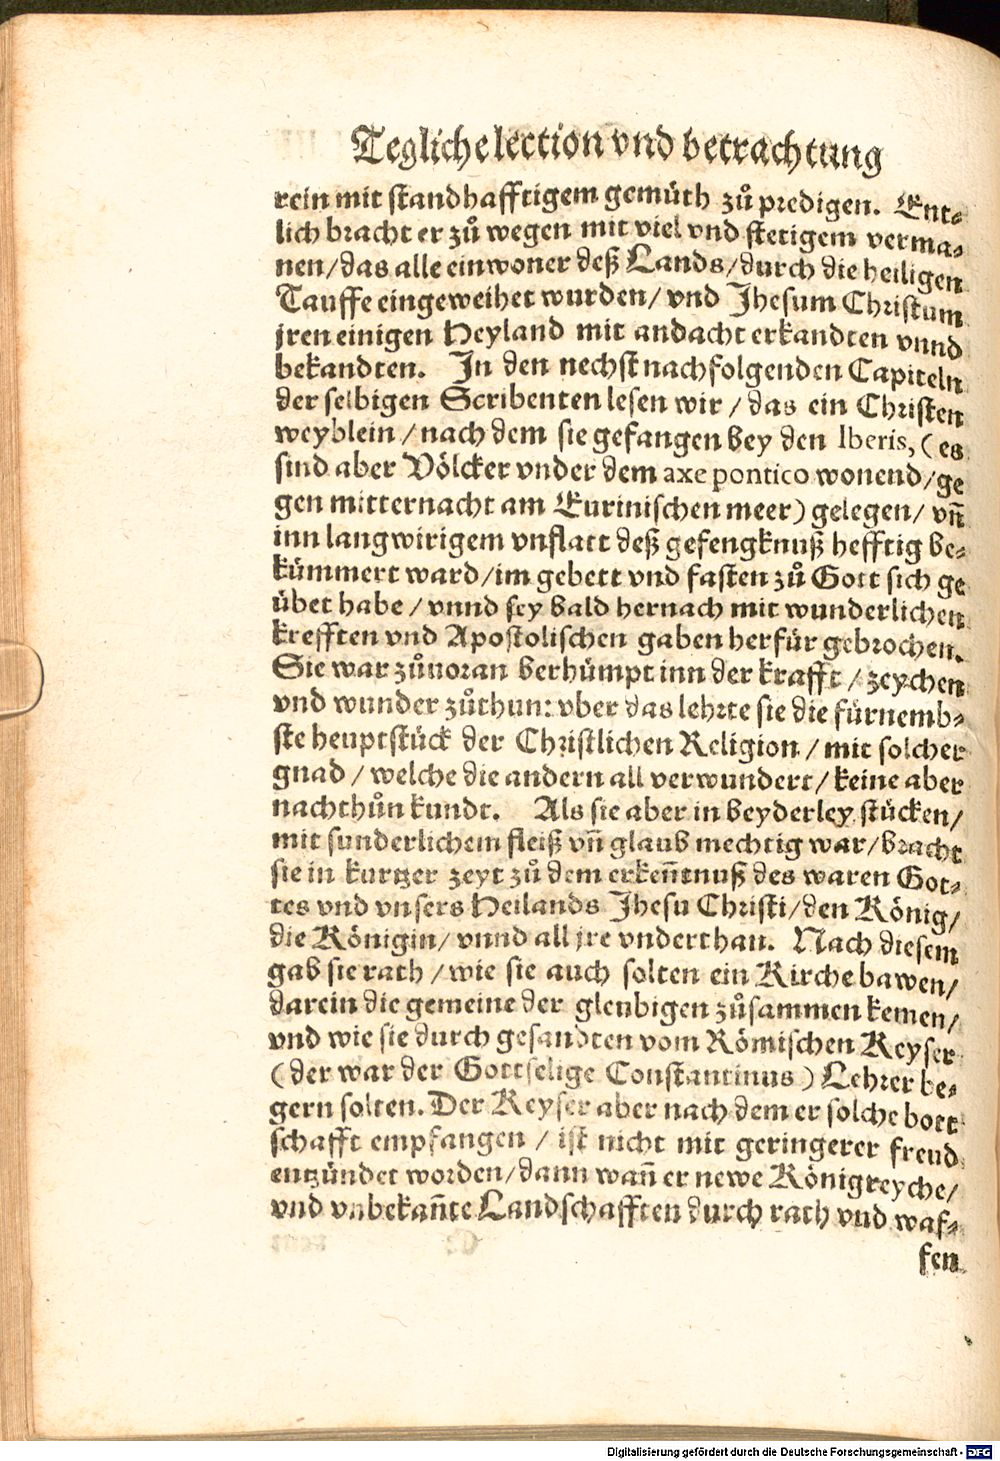 Teglichelection vnd betrachtung
rein mit standhafftigem gemüth zů predigen. Ent⸗
lich bracht er zů wegen mit viel vnd stetigem verma⸗
nen/das alle einwoner deß Lands/durch die heiligen
Tauffe eingeweihet wurden/ vnd Jhesum Christum
jren einigen Heyland mit andacht erkandten vnnd
bekandten. In den nechst nachfolgenden Capiteln
der selbigen Scribenten lesen wir / das ein Christen
weyblein / nach dem sie gefangen bey den Iberis, ( es
sind aber Völcker vnder dem axe pontico wonend/ge
gen mitternacht am Eurinischen meer) gelegen/ vñ
inn langwirigem vnflatt deß gefengknuß hefftig be⸗
kümmert ward/im gebett vnd fasten zů Gott sich ge
übet habe / vnnd sey bald hernach mit wunderlichen
krefften vnd Apostolischen gaben herfür gebrochen.
Sie war zůuoran berhümpt inn der krafft / zeychen
vnd wunder zůthun: vber das lehrte sie die fürnemb⸗
ste heuptstück der Christlichen Religion / mit solcher
gnad / welche die andern all verwundert/ keine aber
nachthůn kundt. Als sie aber in beyderley stücken/
mit sunderlichem fleiß vñ glaub mechtig war/bracht
sie in kurtzer zeyt zů dem erkeñtnuß des waren Got⸗
tes vnd vnsers Heilands Jhesu Christi/den König/
die Königin/ vnnd all jre vnderthan. Nach diesem
gab sie rath / wie sie auch solten ein Kirche bawen/
darein die gemeine der gleubigen zůsammen kemen/
vnd wie sie durch gesandten vom Römischen Keyser
( der war der Gottselige Constantinus ) Lehrer be⸗
gern solten. Der Keyser aber nach dem er solche bott
schafft empfangen / ist nicht mit geringerer freud
entzündet worden/dann wañ er newe Königreyche/
vnd vnbekañte Landschafften durch rath vnd waf⸗
fen
Digitalisierung gefördert durch die Deutsche Forschungsgemeinschaft - DFG